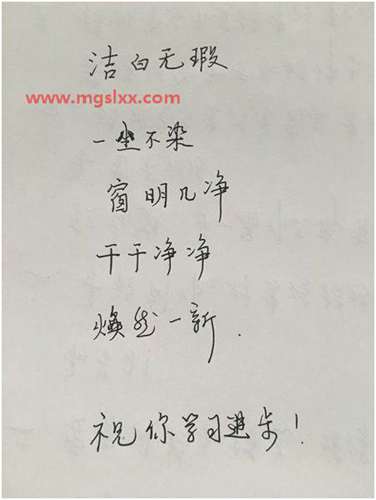 洁白无瑕
www.mgslxx.com
一尘不染
窗明几净
干干净净
焕然一新.
祝你学习进步!